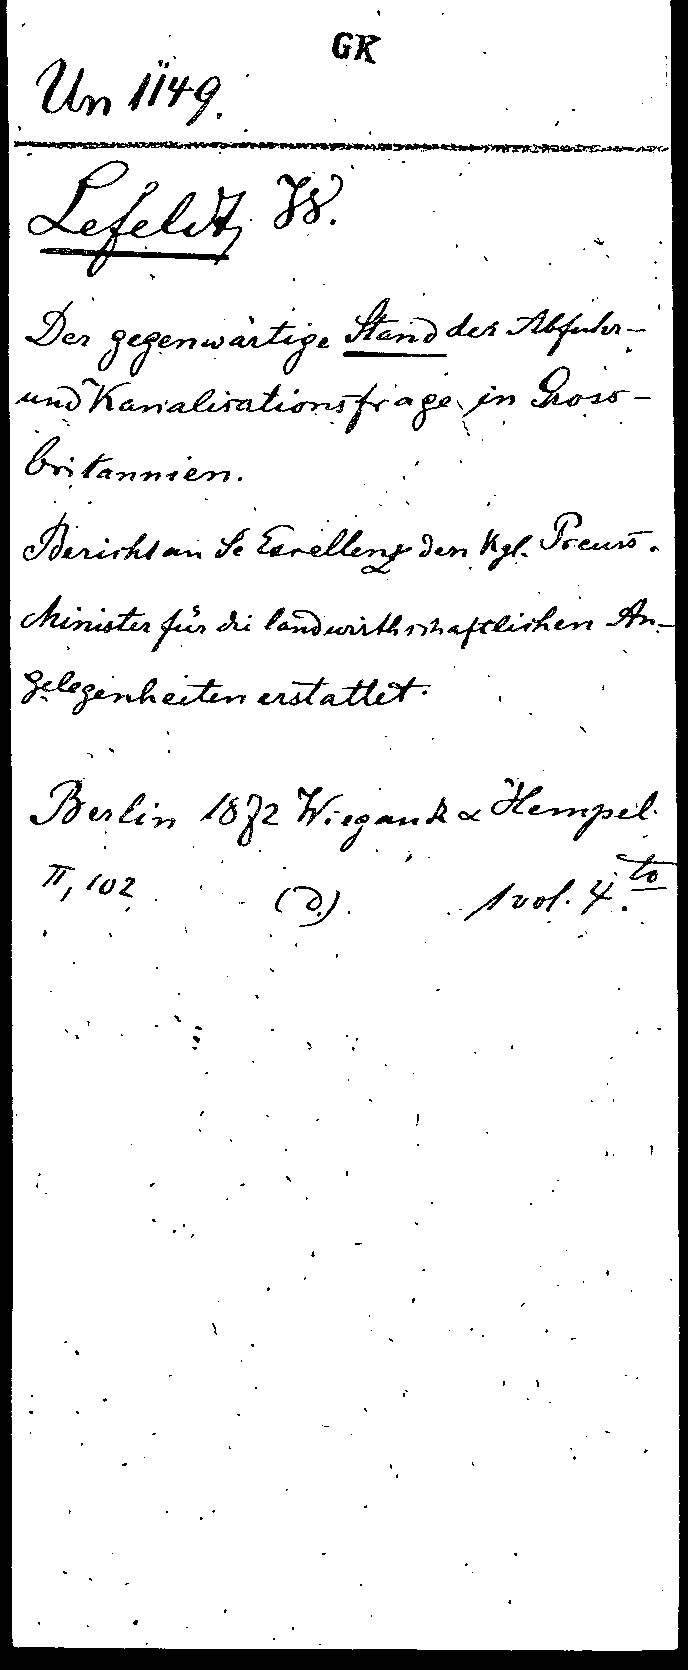 GK
Un 1149.
Lefeldt, W.
Der gegenwärtige Stand der Abfuhr-
und Kanalisationsfrage in Gross-
britannien.
Bericht an Se Excellenz den Kgl. Preuss.
Minister für die landwirthschaftlichen An-
gelegenheiten erstattet.
Berlin 1872 Wiegandt & Hempel.
II, 102 (D.) 1 vol. 4.to